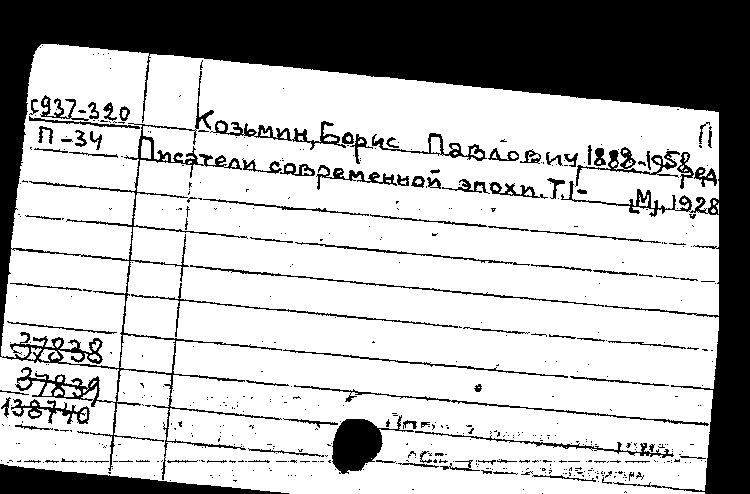 с937-320
П-34
П
Козьмин, Борис Павлович, 1888-1958, ред
Писатели современной эпохи. Т.1- [М], 1928
37838
37839
138740